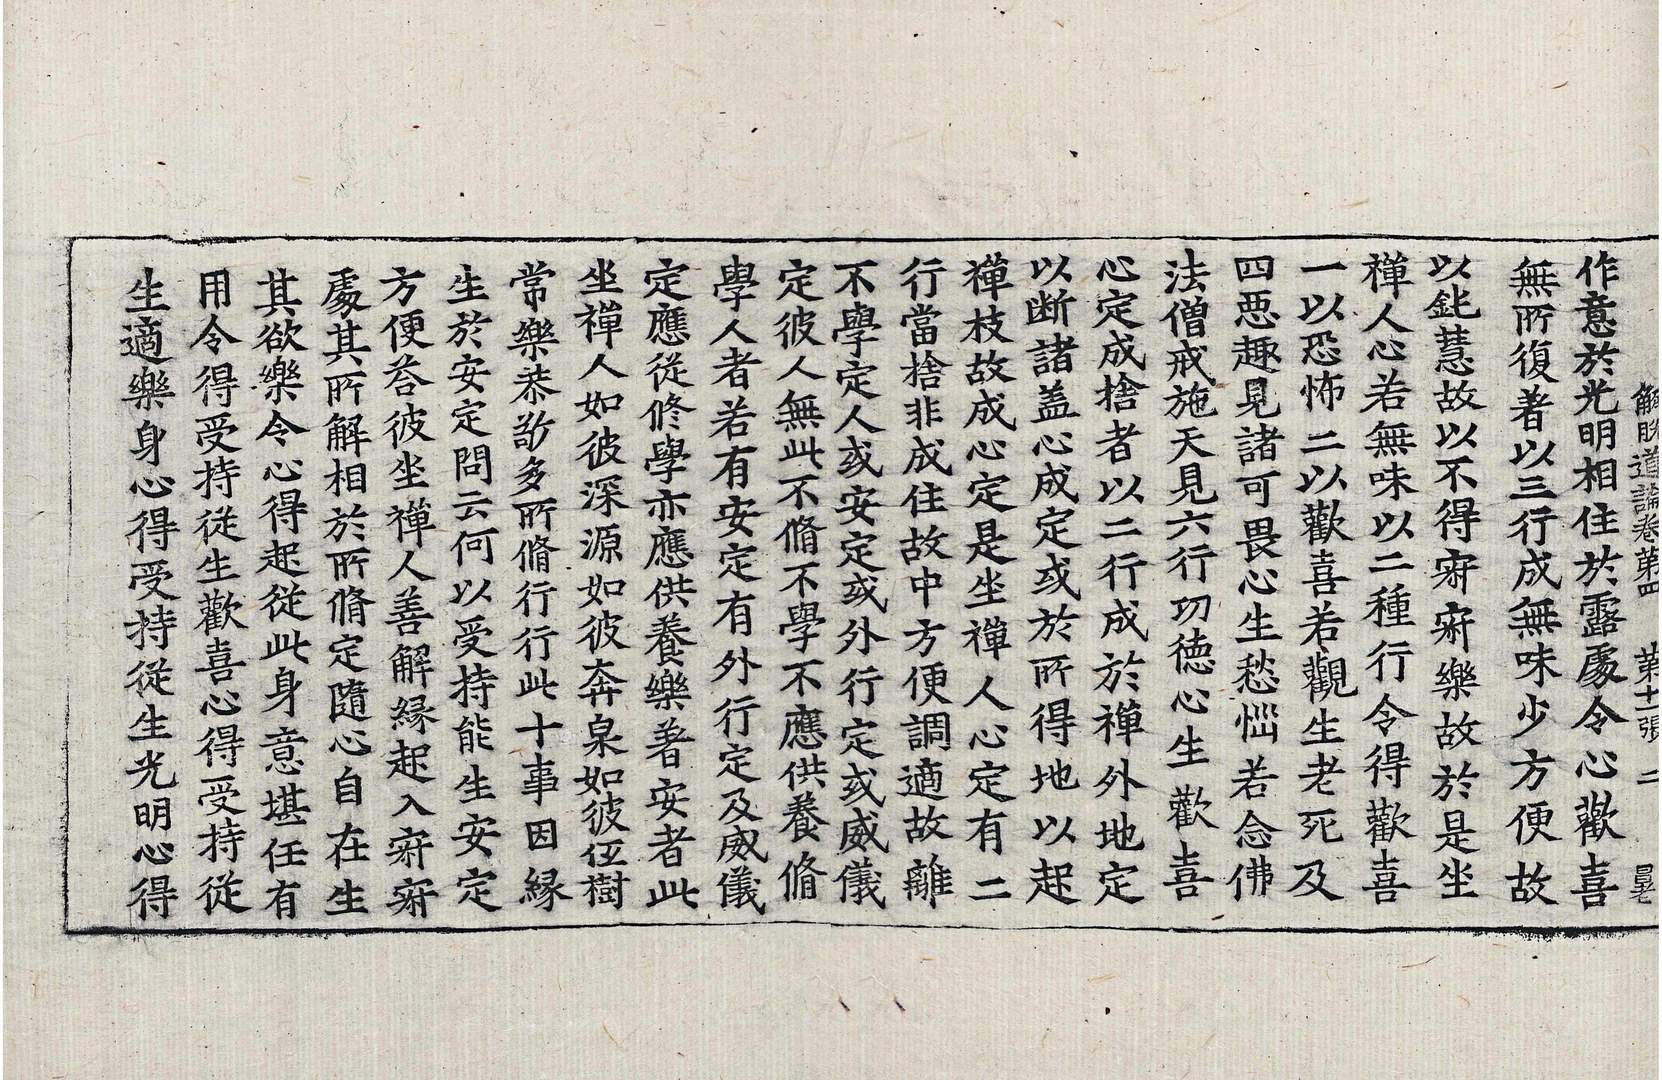 解脫道論卷第四 第十一張 二
作意於光明相住於露處令心歡喜
無所復著以三行成無味少方便故
以鈍慧故以不得寂寂樂故於是坐
禪人心若無味以二種行令得歡喜
一以恐怖二以歡喜若觀生老死及
四惡趣見諸可畏心生愁惱若念佛
法僧戒施天見六行功德心生歡喜
心定成捨者以二行成於禪外地定
以断諸盖心成定或於所得地以起
禪枝故成心定是坐禪人心定有二
行當捨非成住故中方便調適故離
不學定人或安定或外行定或威儀
定彼人無此不脩不學不應供養脩
學人者若有安定有外行定及威儀
定應從修學亦應供養樂著安者此
坐禪人如彼深源如彼奔泉如彼伍樹
常樂恭敬多所脩行行此十事因緣
生於安定問云何以受持能生安定
方便荅彼坐禪人善解緣起入寂寂
處其所解相於所脩定隨心自在生
其欲樂令心得起從此身意堪任有
用令得受持從生歡喜心得受持從
生適樂身心得受持從生光明心得